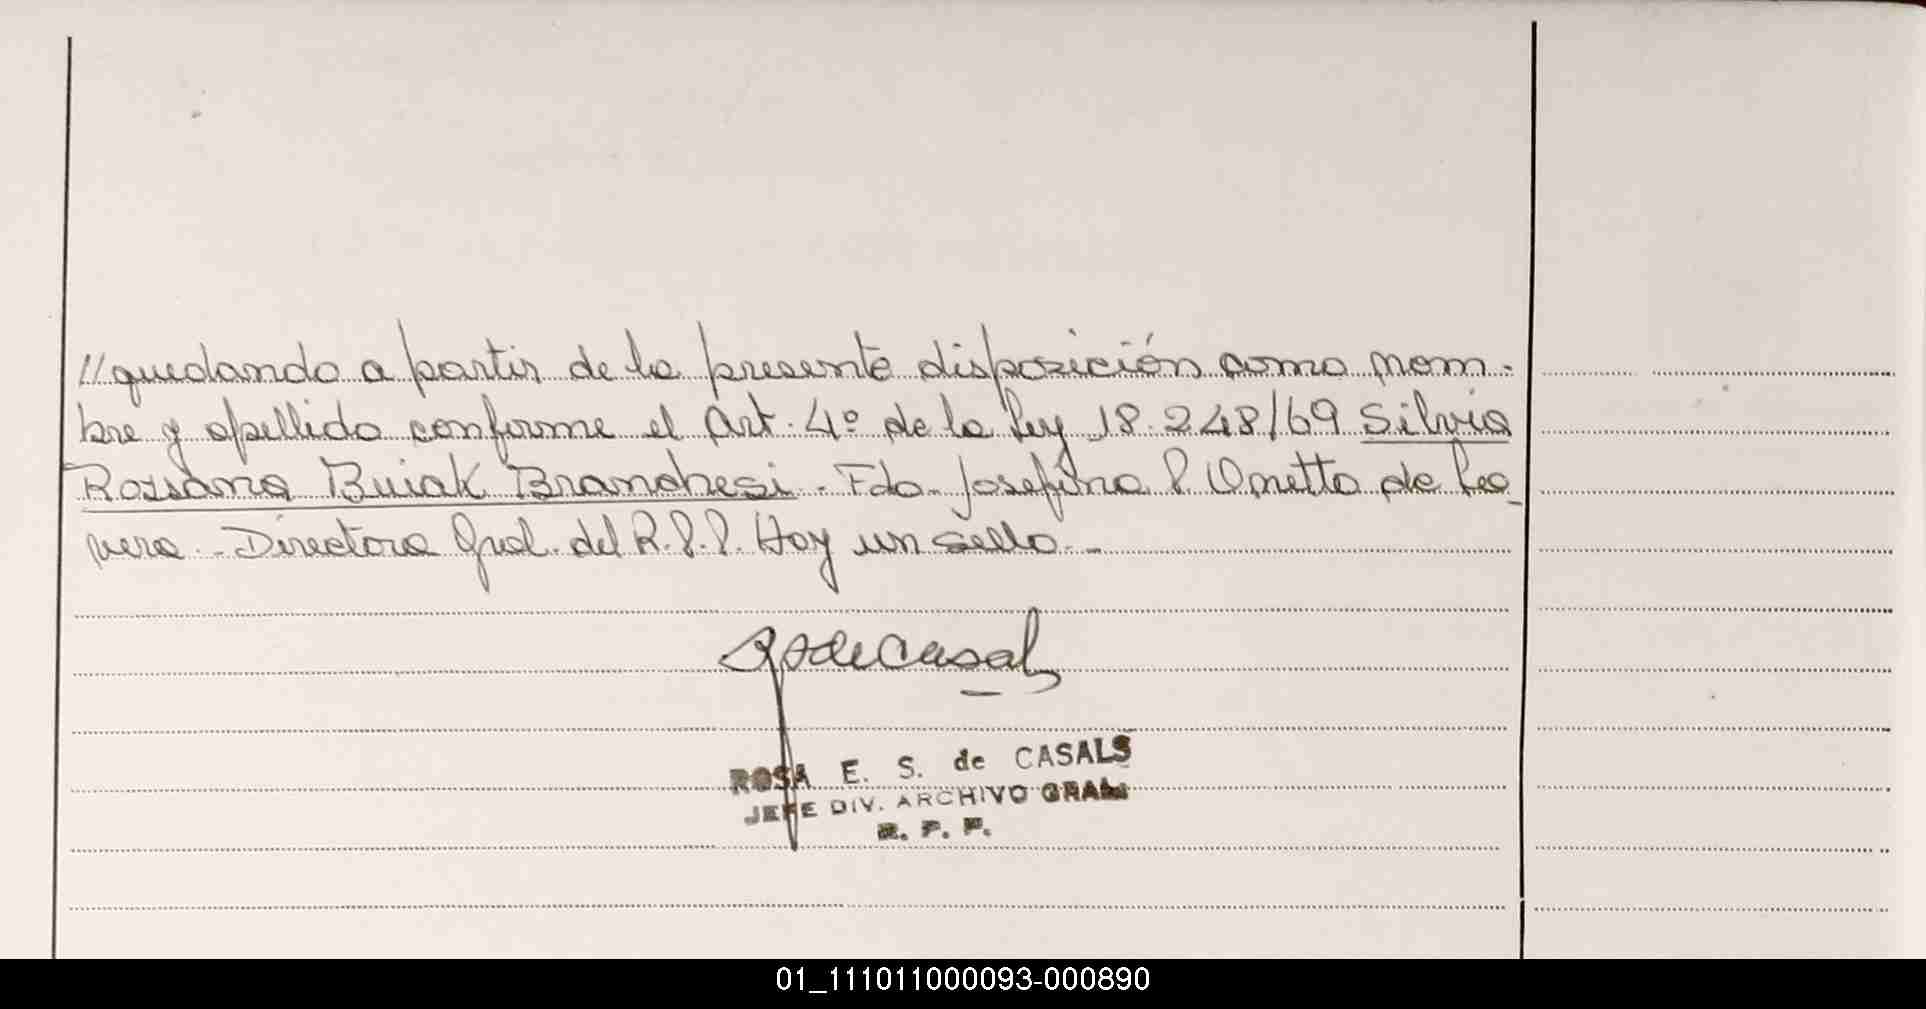 //quedando a partir de la presente disposición como nom-
bre y apellido conforme el Art. 4º de la Ley 18.248/69 Silvia
Rossana Buiak Branchesi. Fdo. Josefina P Onetto de Leo_
vera. - Directora Gral. del R.P.P. Hay un sello. -
RSdeCasals
ROSA E. S. de CASALS
JEFE DIV. ARCHIVO GRAL
R. P. P.
01_111011000093-000890